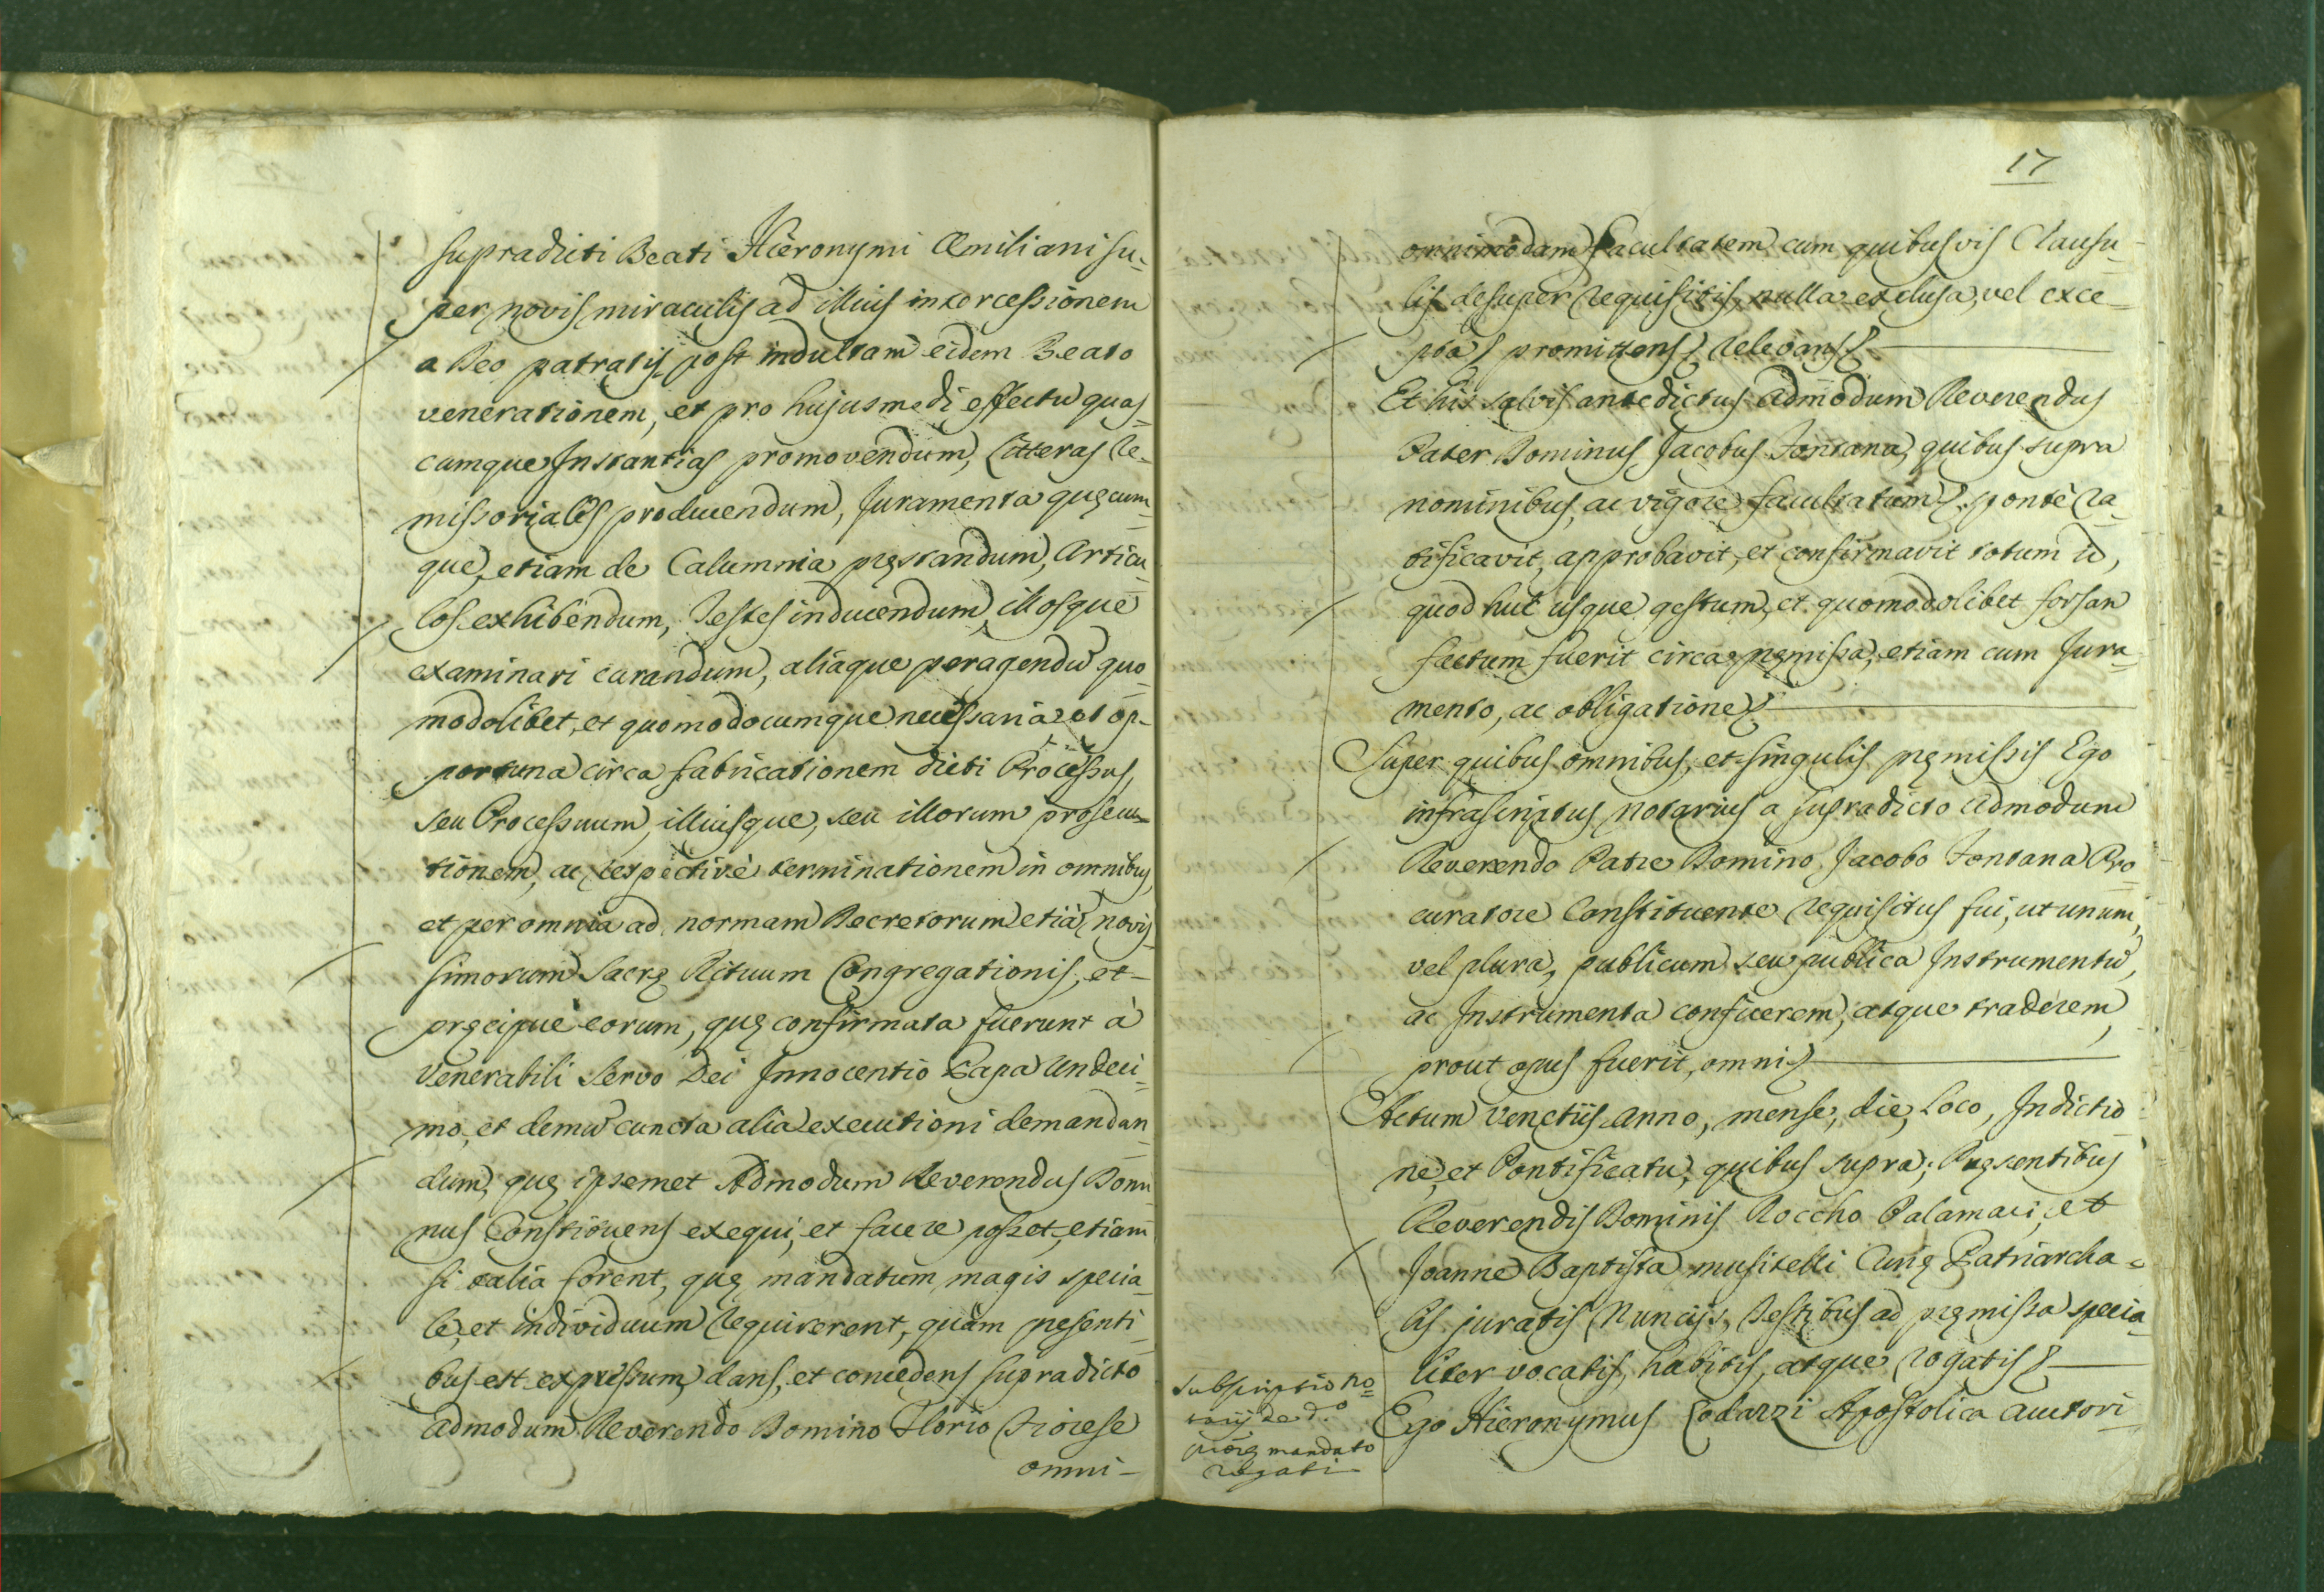 supradicti Beati Hieronymi Æmiliani su-
per novis miraculis ad illius intercessionem
a Deo patratis post indultam eidem Beato
venerationem, et pro hujusmodi effectu quas-
cumque Instantias promovendum, Litteras Re-
missoriales producendum, Juramenta quęcum-
que, etiam de Calumnia pręstandum, Articu-
los exhibendum, Testes inducendum, illosque
examinari curandum, aliaque peragendũ quo-
modolibet, et quomodocumque necessaria et op-
portuna circa fabricationem dicti Processus,
seu Processuum, illiusque, seu illorum prosecu-
tionem, ac respectivè terminationem in omnibus,
et per omnia ad normam Decretorum etiã novis-
simorum Sacrę Rituum Congregationis, et
pręcipuè eorum, quę confirmata fuerunt à
Venerabili Servo Dei Innocentio Papa Undeci-
mo, et demũ cuncta alia executioni demandan-
dum, quę ipsemet Admodum Reverendus Domi-
nus Constituens exequi, et facere posset, etiam
si talia forent, quę mandatum magis specia-
le, et individuum requirerent, quàm pręsenti-
bus est expressum, dans, et concedens supradicto
Admodum Reverendo Domino Florio
omni-
17
omnimodam facultatem cum quibusvis Clausu-
lis desuper requisitis, nulla exclusa, vel exce-
pta promittens relevans
Et his salvis antedictus Admodum Reverendus
Pater Dominus Jacobus Fontana, quibus supra
nominibus, ac vigore facultatum sponte ra-
tificavit, approbavit, et confirmavit totum id,
quod huc usque gestum, et quomodolibet forsan
factum fuerit circa pręmissa, etiam cum Jura-
mento, ac obligatione
Super quibus omnibus, et singulis pręmissis Ego
infrascriptus Notarius a supradicto Admodum
Reverendo Patre Domino Jacobo Fontana Pro-
curatore Constituente requisitus fui, ut unum,
vel plura, publicum seu publica Instrumentũ,
ac Instrumenta conficerem, atque traderem,
prout opus fuerit, omni
Actum Venetiis Anno, mense, die, Loco, Indictio-
ne, et Pontificatu, quibus supra; Pręsentibus
Reverendis Dominis Roccho Palamari, et
Joanne Baptista Musitelli Curię Patriarcha-
lis juratis Nunciis, Testibus ad pręmissa specia-
liter vocatis, habitis, atque rogatis
Subscriptio No-
tarij de d.º
mandato
rogati
Ego Hieronymus Codazzi Apostolica auctori-